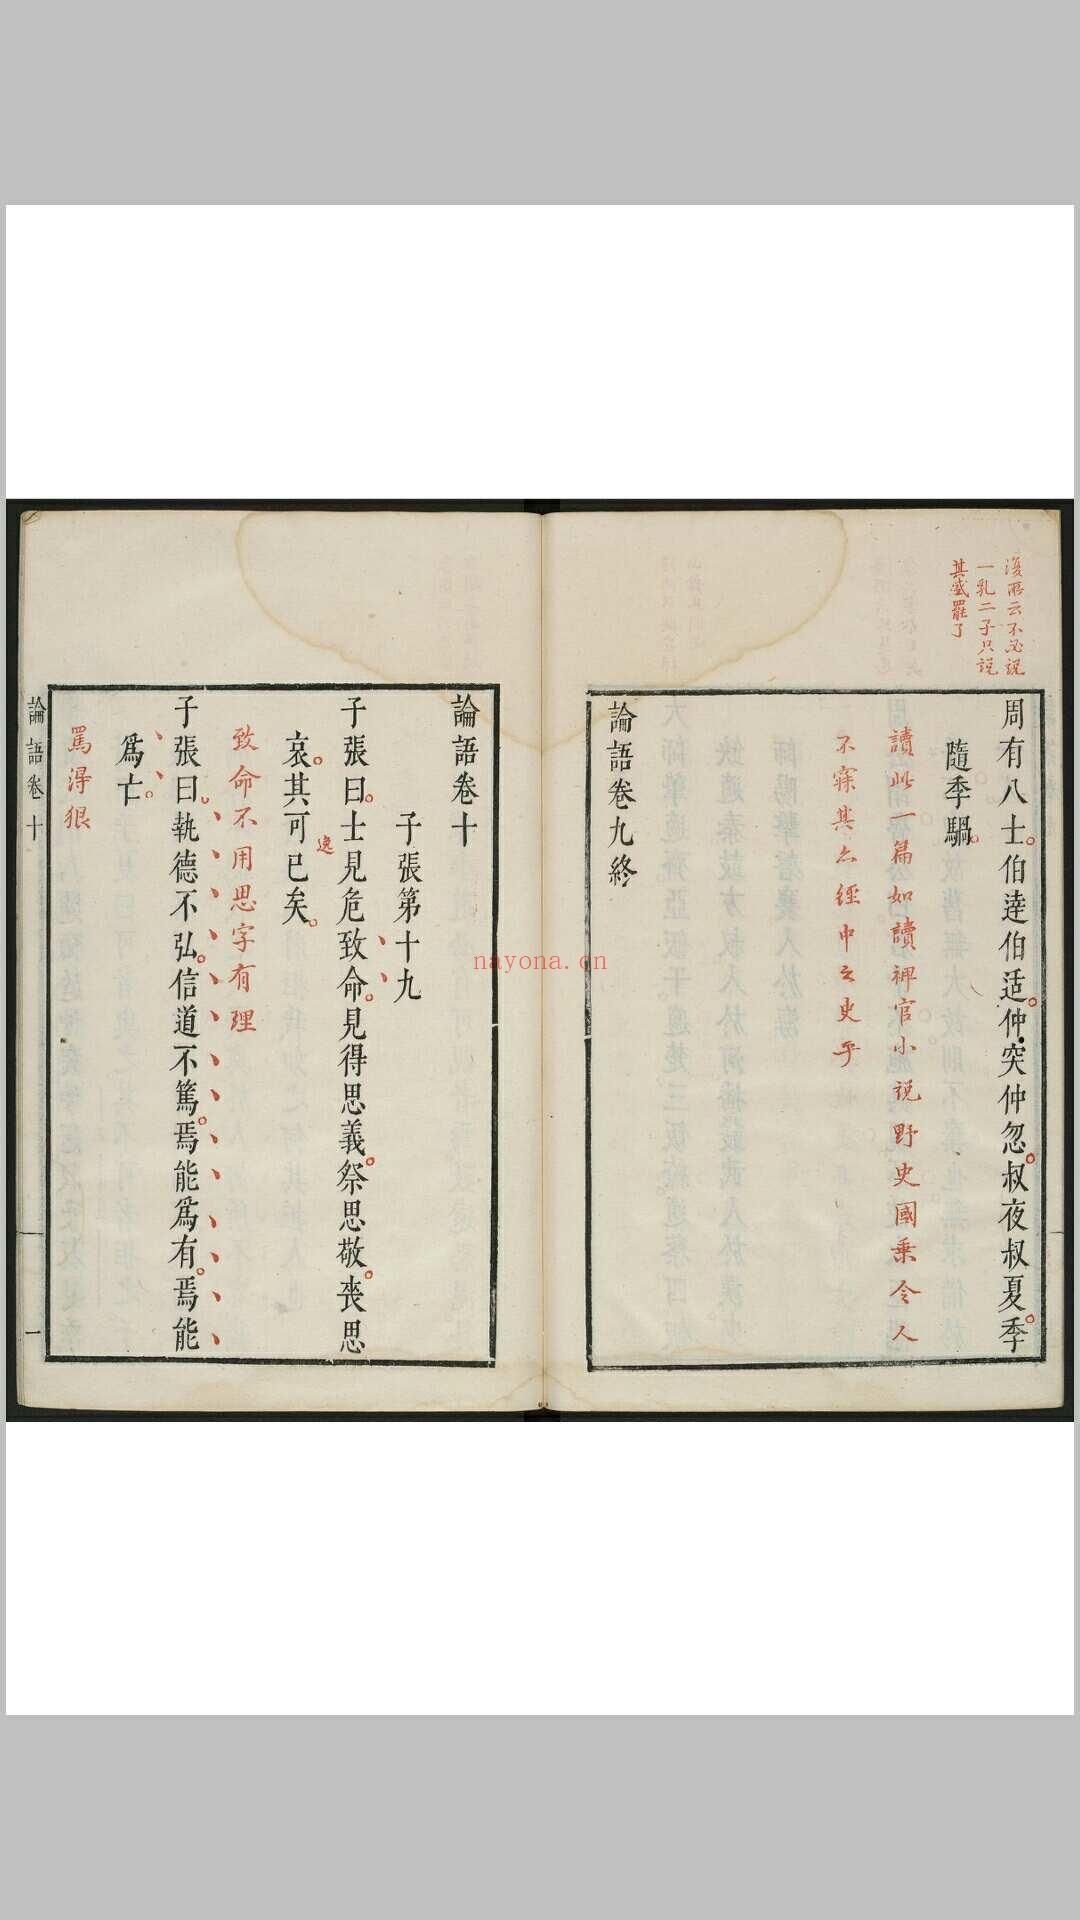 復所云不必說
一乳二子只說
其盛罷了
周有八士伯達伯适仲突仲忽叔夜叔夏季
隨季騧
讀此一篇如讀裨官小說野史國乗令人
不寐其亦經中之史乎
論語卷九終
論語卷十
子張第十九
子張曰士見危致命見得思義祭思敬喪思
哀其可已矣
逸
致命不用思字有理
子張曰執德不弘信道不篤焉能爲有焉能
爲亡
罵得狠
論語卷十
一
nayona.cn